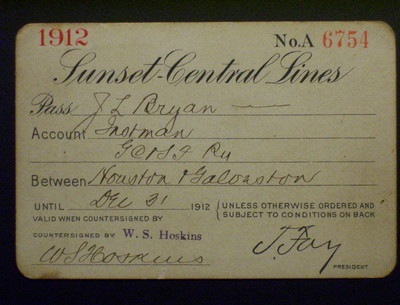 1912 No.A 6754
Sunset-Central Lines
Pass J L Bryan
Account Instman
GC&SF Ry
Between Houston & Galveston
UNTIL Dec 31 1912 { UNLESS OTHERWISE ORDERED AND
VALID WHEN COUNTERSIGNED BY SUBJECT TO CONDITIONS ON BACK
COUNTERSIGNED BY W. S. Hoskins
WS Hoskins
PRESIDENT